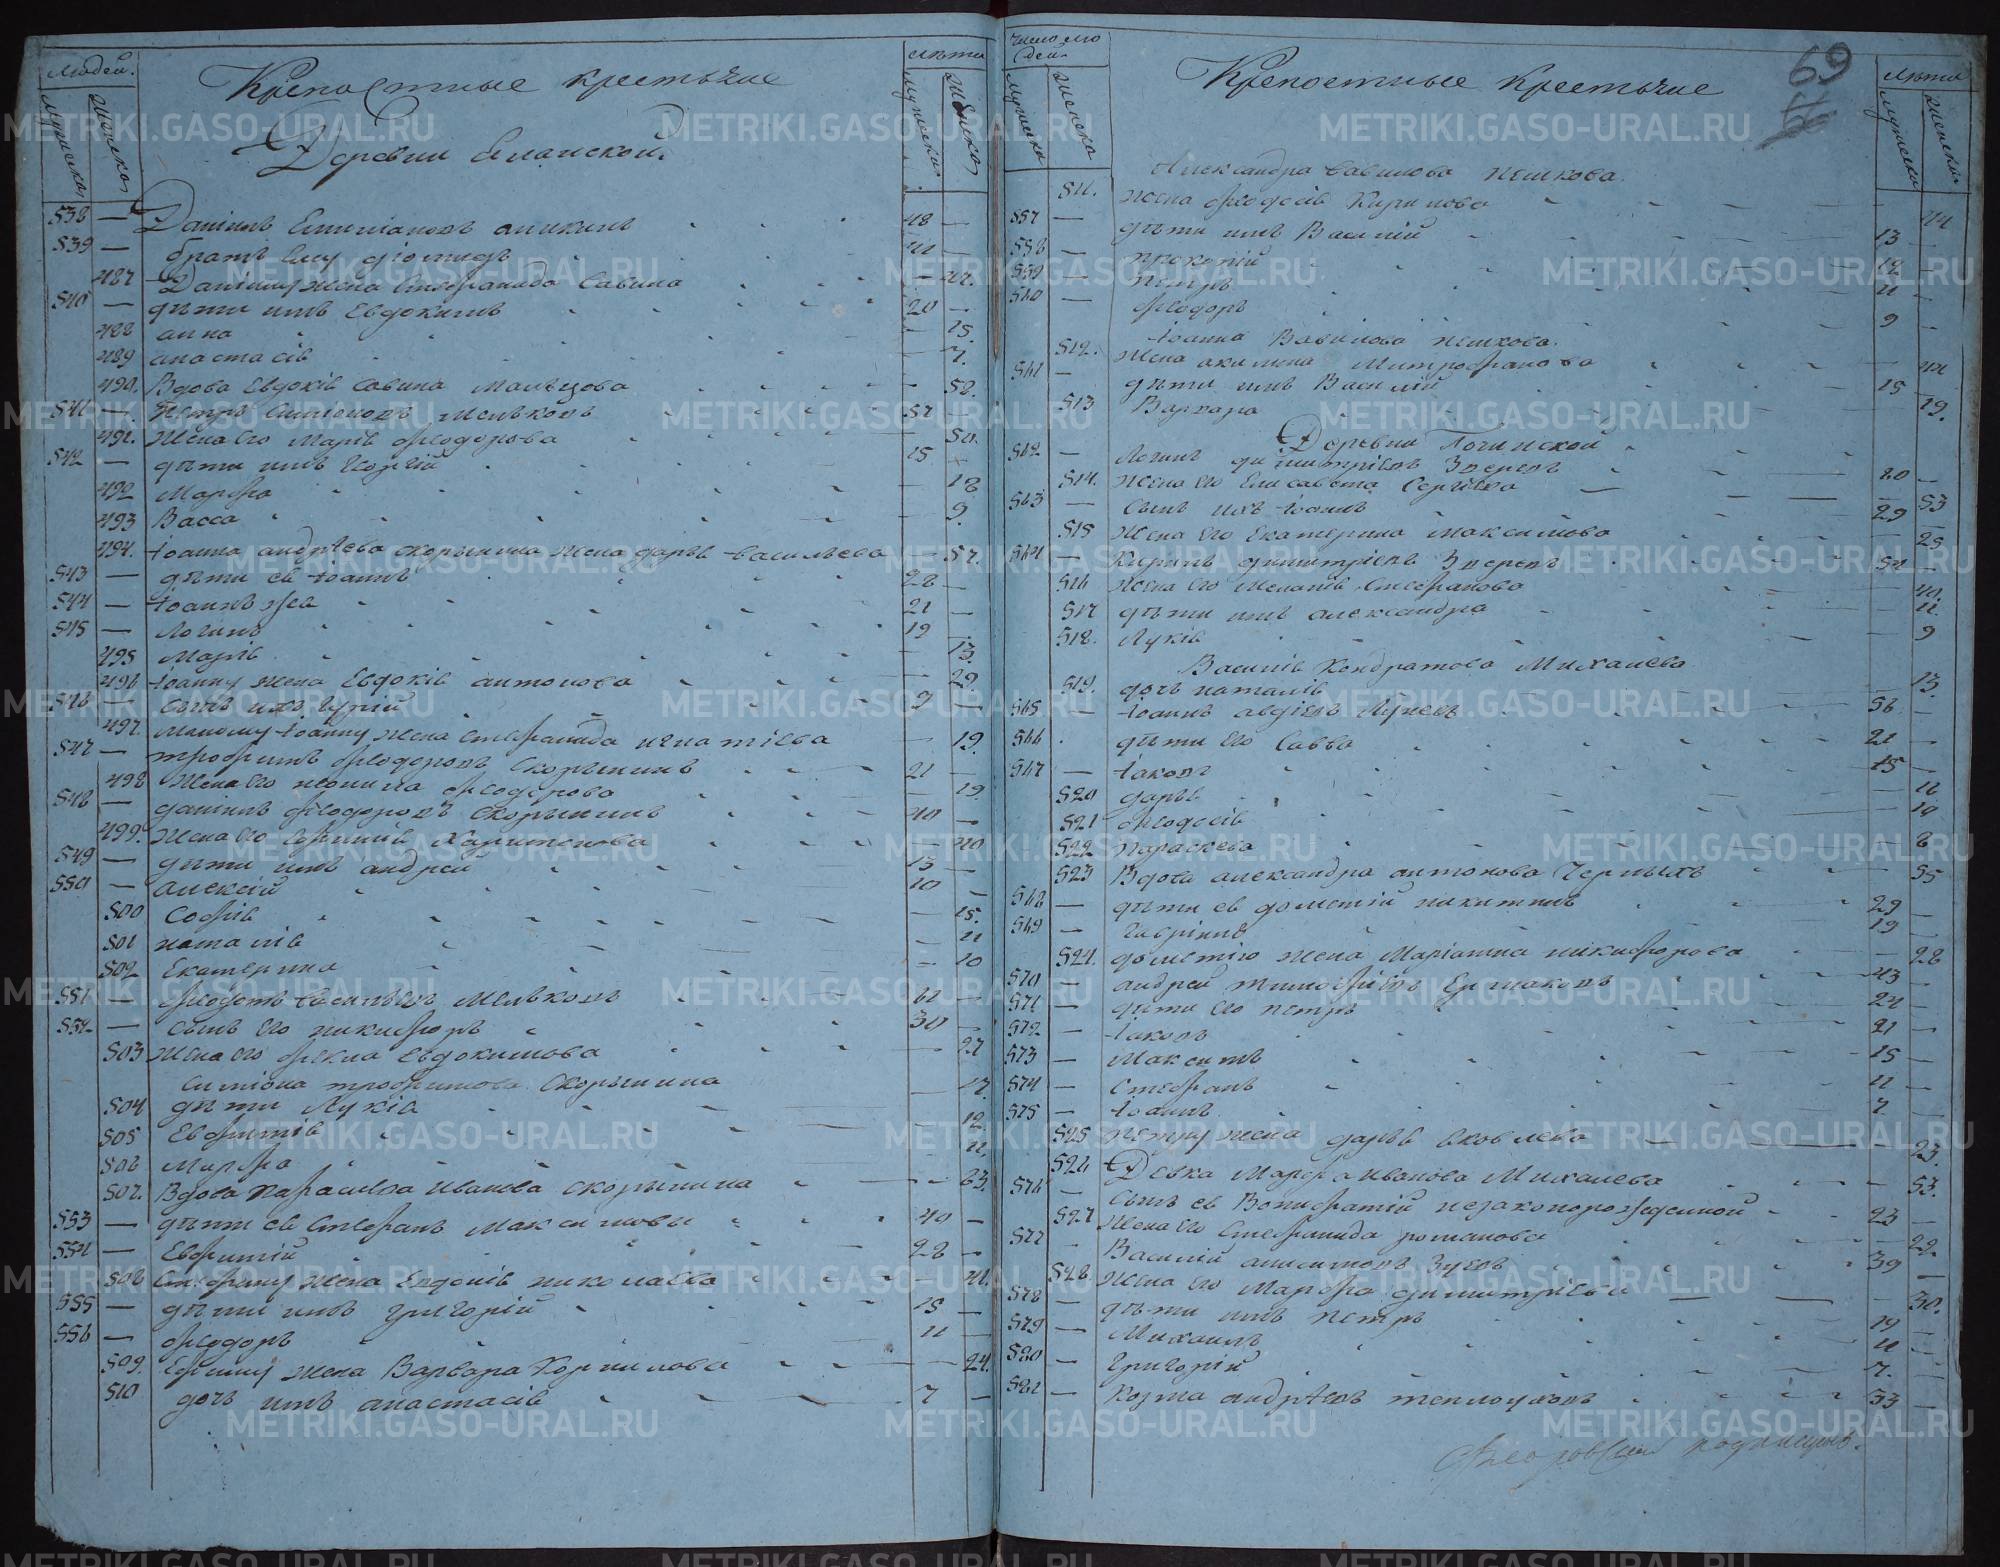 людей.
мужеска
женска
Крепостные крестьяне
Деревни Еланской.
лѣта
мужеска
женска
538 — Данiилъ Емилiановъ аникинъ 48 —
539 — братъ Ему дiомидъ 41 —
487 Данiилу жена Стефанида Савина — 47.
540 — дѣти ихъ Евдокимъ 20 —
488 анна — 15.
489 анастасiя — 7.
490. Вдова Евдокiя Савина Мальцова — 52.
541 — Петръ Симеоновъ Мельковъ 51 —
491. Жена Его Марiя Феодорова — 50.
542 — дѣти ихъ Георгiй 15 —
492 Марфа — 18
493 Васса — 9.
494. Iоанна андрѣева скорынина жена дарья васильева — 57.
543 — дѣти ея Iоаннъ 28 —
544 — Iоаннъ же 21 —
545 — Логинъ 19 —
495 Марiя — 13.
496 Iоанну жена Евдокiя антонова — 29.
546 — сынъ ихъ Iулiй 9 —
497. Малому Iоанну жена Стефанида игнатiева — 19.
547 — трофимъ Феодоровъ Скорынинъ 21 —
498 Жена Его неонила Феодорова — 19.
548 — данiилъ Феодоровъ скорынинъ 40 —
499. Жена Его Ефимiя Харитонова — 40
549 — дѣти ихъ андрей 13 —
550 — алексiй 10 —
500 Софiя — 15.
501 наталiя — 11
502 Екатерина — 10
551 — Феодотъ васильевъ Мельковъ 61 —
552 — сынъ Его никифоръ 30 —
503 Жена Его Фекла Евдокимова — 27
Симеона трофимова Скорынина
504 дѣти Лукiя — 17.
505 Евфимiя — 12.
506 Марфа — 11.
507. Вдова Параскева Иванова скорынина — 63.
553 — дѣти ея Стефанъ Максимовы 40 —
554 — Евфимiй 28 —
508 Стефану жена Евдокiя николаева — 41.
555 — дѣти ихъ григорiй 15 —
556 — Феодоръ 11 —
509. Ефиму жена Варвара Корнилова — 24.
510 дочь ихъ анастасiя 7 —
число людей.
мужеска
женска
Крепостные крестьяне
69
лѣта
мужеска
женска
Александра Савинова Пешкова.
511. Жена Феодосiя Кирилова — 44
557 — дѣти ихъ Василiй 13 —
558 — прокопiй 12 —
559 — Петръ 11 —
560 — Феодоръ 9 —
Iоанна Вавилова пешкова.
512. Жена акилина Митрофанова — 44
561 — дѣти ихъ Василiй 15
513 Варвара — 19.
Деревни Логинской
562 — Логинъ димитрiевъ Зверевъ 60 —
514. Жена Его Елисавета Сергѣева — 53
563 — сынъ ихъ Iоаннъ 29 —
515 Жена Его Екатерина максимова — 25
564 — Кирилъ димитрiевъ Зверевъ 51 —
516 Жена Его Меланiя Стефанова — 40.
517 дѣти ихъ александра — 11.
518. Лукiя — 9
Василiя Кондратова Михалева
519. дочь наталiя — 13.
565 — Iоаннъ авдiевъ Лузевъ 56 —
566 дѣти Его Савва 21 —
567 — Iаковъ 15 —
520 дарья — 16
521 Феодосiя — 14
522 параскева — 8
523 Вдова александра антонова Черныхъ — 55
568 — дѣти ея дометiй никитинъ 29 —
569 — гаврiилъ 19 —
524. дометiю жена Марiанна никифорова — 28
570 — андрей тимофѣевъ Ермаковъ 43 —
571 — дѣти Его петръ 24 —
572 — Iаковъ 21 —
573 — Максимъ 15 —
574 — Стефанъ 11 —
575 — Iоаннъ 7 —
525 петру жена дарья яковлева — 23.
526 Девка Марфа Иванова Михалева — 53.
576 — сынъ ея Вонифатiй незаконорожденной 23 —
527 Жена Его Стефанида романова — 29.
577 — Василiй анемитовъ Зуевъ 39 —
528. Жена Его Марфа димитрiева — 30.
578 — дѣти ихъ петръ 14 —
579 — Михаилъ 11 —
580 — григорiй 7. —
581 — Козма андрѣевъ теплоуховъ 33 —
METRIKI.GASO-URAL.RU